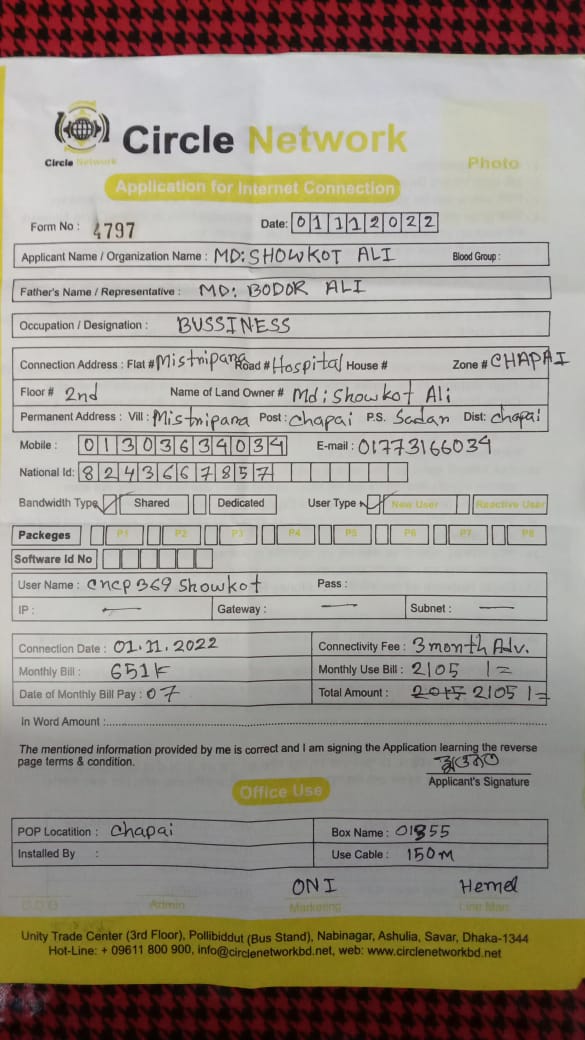 Circle Network
Circle Network
Photo
Application for Internet Connection
Form No : 4797
Date: 01112022
Applicant Name / Organization Name : MD: SHOWKOT ALI Blood Group :
Father's Name / Representative : MD: BODOR ALI
Occupation / Designation : BUSSINESS
Connection Address : Flat # Mistripara Road # Hospital House # Zone # CHAPAI
Floor # 2nd Name of Land Owner # Md: Showkot Ali
Permanent Address : Vill : Mistripara Post : Chapai P.S. Sadar Dist: Chapai
Mobile : 01303634034 E-mail : 01773166034
National Id: 8243667857
Bandwidth Type Shared Dedicated User Type New User Reactive User
Packeges P1 P2 P3 P4 P5 P6 P7 P8
Software Id No
User Name : cncp369showkot Pass :
IP : — Gateway : — Subnet : —
Connection Date : 01.11.2022 Connectivity Fee : 3 month Adv.
Monthly Bill : 651k Monthly Use Bill : 2105 1=
Date of Monthly Bill Pay : 07 Total Amount : 2015 2105 1=
In Word Amount :
The mentioned information provided by me is correct and I am signing the Application learning the reverse
page terms & condition.
Applicant's Signature
Office Use
POP Locatition : Chapai Box Name : 01855
Installed By : Use Cable : 150M
ONI Hemel
C.O.O Admin Marketing Line Man
Unity Trade Center (3rd Floor), Pollibiddut (Bus Stand), Nabinagar, Ashulia, Savar, Dhaka-1344
Hot-Line: + 09611 800 900, info@circlenetworkbd.net, web: www.circlenetworkbd.net